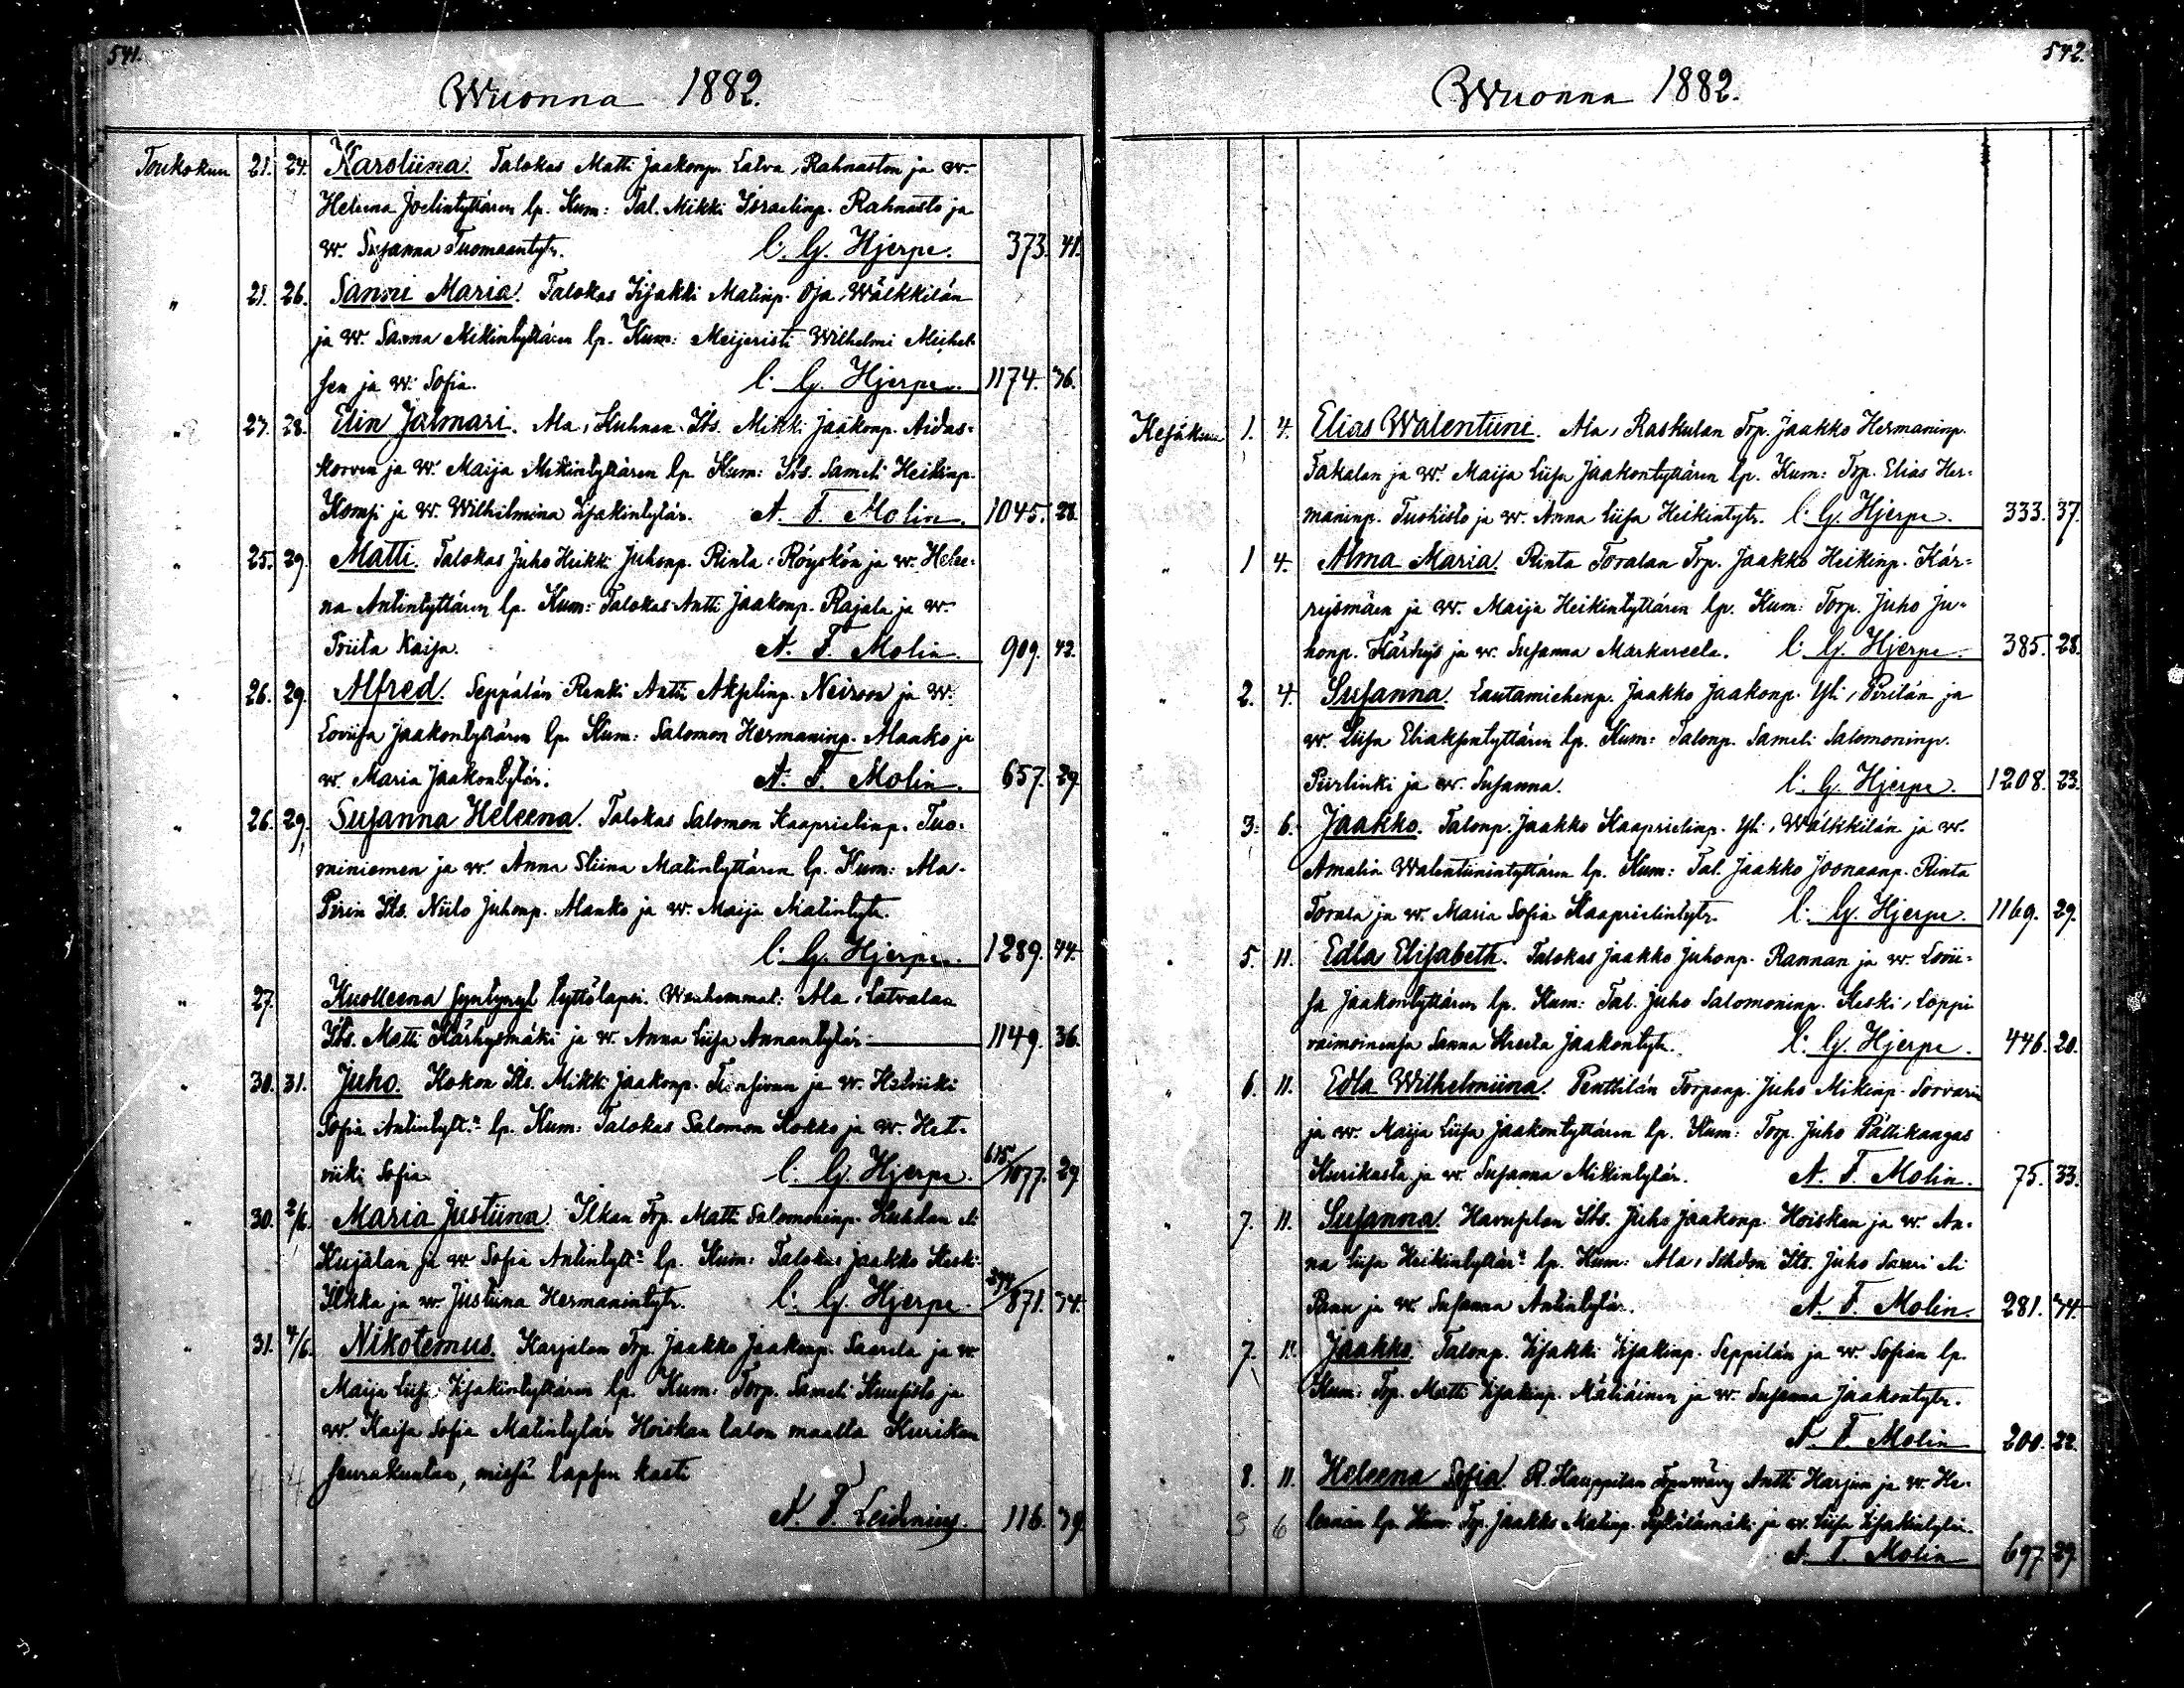 541.
Wuonna 1882.
Toukokuu 21. 24. Karoliina. Talokas Matti Jaakonp. Latva, Rahnaston ja w.
Heleena Joelintyttären lp. Kum: Tal. Mikki Israelinp. Rahnasto ja
w. Susanna Tuomaantytr. C. G. Hjerpe. 373. 41.
" 21. 26. Sanni Maria. Talokas Iisakki Matinp. Oja, Wälkkilän
ja w. Sanna Mikintyttären lp. Kum: Meijeristi Wilhelmi Meihel-
sen ja w. Sofia. C. G. Hjerpe. 1174. 36.
" 27. 28. Elin Jalmari. Ala, Kuhnan Its. Mikki Jaakonp. Aidas-
korven ja w. Maija Mikintyttären lp. Kum: Its. Sameli Heikinp.
Kompi ja w. Wilhelmina Iisakintytär. A. F. Molin. 1045. 28.
" 25. 29. Matti. Talokas Juho Heikki Juhonp. Rinta, Röyskön ja w. Helee-
na Antintyttären lp. Kum: Talokas Antti Jaakonp. Rajala ja w.
Priita Kaisa. A. F. Molin. 909. 42.
" 26. 29. Alfred. Seppälän Renki Antti Akselinp. Neiroon ja w.
Loviisa Jaakontyttären lp. Kum: Salomon Hermaninp. Alanko ja
w. Maria Jaakontytär. A. F. Molin. 657. 29.
" 26. 29. Susanna Heleena. Talokas Salomon Kaaprielinp. Tuo-
miniemen ja w. Anna Stiina Matintyttären lp. Kum: Ala-
Pirin Its. Niilo Juhonp. Alanko ja w. Maija Matintytr.
C. G. Hjerpe. 1289. 44.
" 27. Kuolleena syntynyt tyttölapsi. Wanhemmat: Ala, Latvalan
Its. Matti Kärhysmäki ja w. Anna Liisa Annantytär 1149. 36.
" 30. 31. Juho. Kokon Its. Mikki Jaakonp. ja w. Hetviiki
Sofia Antintytt:n lp. Kum: Talokas Salomon Kokko ja w. Het-
viiki Sofia. C. G. Hjerpe. 615/1077. 29
" 30. 2/6. Maria Justiina. Ilkan Trp. Matti Salomoninp. Huhdan eli
Kujalan ja w. Sofia Antintytt:n lp. Kum: Talokas Jaakko Keski-
Ilkka ja w. Justiina Hermanintytr. C. G. Hjerpe. /871. 34.
" 31. 4/6. Nikotemus. Karjalan Trp. Jaakko Jaakonp. Saarela ja w.
Maija Liisa Iisakintyttären lp. Kum: Torp. Sameli Kuusisto ja
w. Kaisa Sofia Matintytär Hoiskan talon maalla Kurikan
seurakuntaa, missä lapsen kasti
A. F. Leidenius. 116. 39.
542.
Wuonna 1882.
Kesäkuu 1. 4. Elias Walentiini. Ala, Raskulan Trp. Jaakko Hermaninp.
Takalan ja w. Maija Liisa Jaakontyttären lp. Kum: Trp. Elias Her-
maninp. Tuohisto ja w. Anna Liisa Heikintytr. C. G. Hjerpe. 333. 37.
" 1 4. Alma Maria. Rinta Toralan Trp. Jaakko Heikinp. Kär-
ryismäen ja w. Maija Heikintyttären lp. Kum: Torp. Juho Ju-
honp. Kärhys ja w. Susanna Markareeta. C. G. Hjerpe. 385. 28.
" 2. 4. Susanna. Lautamiehenp. Jaakko Jaakonp. Yli, Pirilän ja
w. Liisa Eliaksentyttären lp. Kum: Talonp. Sameli Salomoninp.
Piirlinki ja w. Susanna. C. G. Hjerpe. 1208. 23.
" 3. 6. Jaakko. Talonp. Jaakko Kaaprielinp. Yli, Wälkkilän ja w.
Amalia Walentiinintyttären lp. Kum: Tal. Jaakko Joonaanp. Rinta
Torala ja w. Maria Sofia Kaaprielintytr. C. G. Hjerpe. 1169. 29.
" 5. 11. Edla Elisabeth. Talokas Jaakko Juhonp. Rannan ja w. Lovii-
sa Jaakontyttären lp. Kum: Tal. Juho Salomoninp. Keski, Loppi
vaimoinensa Sanna Kreeta Jaakontytr. C. G. Hjerpe. 446. 20.
" 6. 11. Edla Wilhelmiina. Penttilän Torpanp. Juho Mikinp. Sorvarin
ja w. Maija Liisa Jaakontyttären lp. Kum: Torp. Juho Pältikangas
Kurikasta ja w. Susanna Mikintytär. A. F. Molin. 75. 33.
" 7. 11. Susanna. Havuselan Its. Juho Jaakonp. Hoiskan ja w. An-
na Liisa Heikintyttär:n lp. Kum: Ala, Its. Juho Saari eli
Penn ja w. Susanna Antintytär. A. F. Molin. 281. 34.
" 7. 11. Jaakko. Talonp. Iisakki Iisakinp. Seppilän ja w. Sofian lp.
Kum: Trp. Matti Iisakinp. Mätiäinen ja w. Susanna Jaakontytr.
A. F. Molin 200. 22.
" 8. 11. Heleena Sofia. R. Kauppilan Antti Harjun ja w. He-
leenan lp. Kum: Trp. Jaakko Matinp. ja w. Liisa Iisakintytär.
A. F. Molin 697. 29.